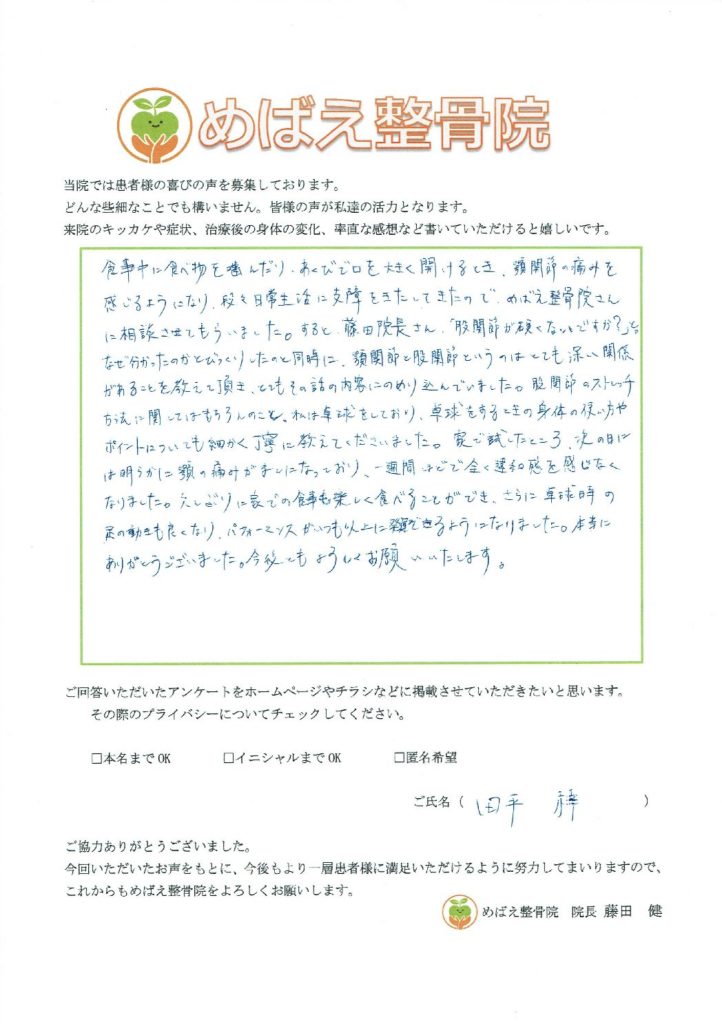 めばえ整骨院
当院では患者様の喜びの声を募集しております。
どんな些細なことでも構いません。皆様の声が私達の活力となります。
来院のキッカケや症状、治療後の身体の変化、率直な感想など書いていただけると嬉しいです。
食事中に食べ物を噛んだり、あくびで口を大きく開けるとき、顎関節の痛みを
感じるようになり、段々日常生活に支障をきたしてきたので、めばえ整骨院さん
に相談させてもらいました。すると、藤田院長さん、「股関節が硬くないですか?」と。
なぜ分かったのかとびっくりしたのと同時に、顎関節と股関節というのはとても深い関係
があることを教えて頂き、とてもその話の内容にのめり込んでいました。股関節のストレッチ
方法に関してはもちろんのこと、私は卓球をしており、卓球をするときの身体の使い方や
ポイントについても細かく丁寧に教えてくださいました。家で試したところ、次の日に
は明らかに顎の痛みがましになっており、一週間ほどで全く違和感を感じなく
なりました。久しぶりに家での食事も楽しく食べることができ、さらに卓球時の
足の動きも良くなり、パフォーマンスがいつも以上に発揮できるようになりました。本当に
ありがとうございました。今後ともよろしくお願いいたします。
ご回答いただいたアンケートをホームページやチラシなどに掲載させていただきたいと思います。
その際のプライバシーについてチェックしてください。
□本名までOK □イニシャルまでOK □匿名希望
ご氏名( 田平 )
ご協力ありがとうございました。
今回いただいたお声をもとに、今後もより一層患者様に満足いただけるように努力してまいりますので、
これからもめばえ整骨院をよろしくお願いします。
めばえ整骨院 院長 藤田 健